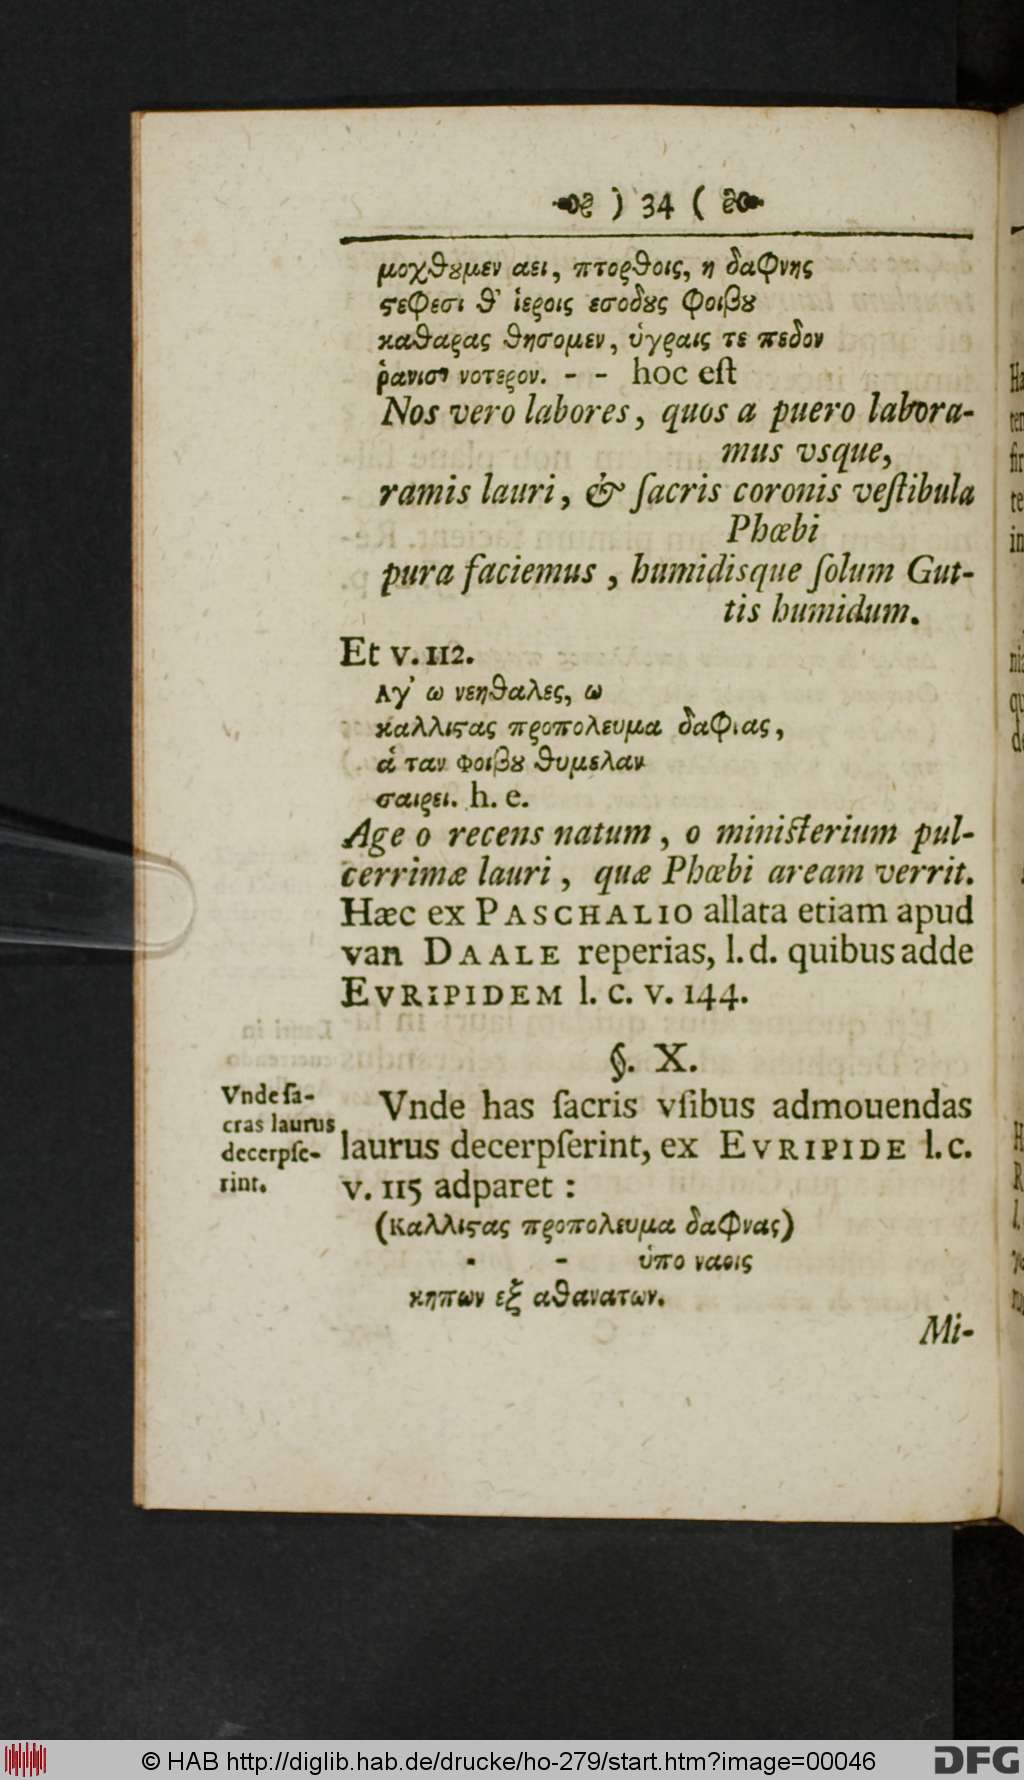 ) 34 (
μοχθȣμεν αει, πτορθοις, η δαφνης
ϛεφεσι θ' ἱεροις εσοδȣς φοιβȣ
καθαρας θησομεν, ὑγραις τε πεδον
ῥανισι νοτερον. - - hoc eſt
Nos vero labores, quos a puero labora-
mus vsque,
ramis lauri, & ſacris coronis veſtibula
Phœbi
pura faciemus, humidisque ſolum Gut-
tis humidum.
Et v. 112.
Αγ' ω νεηθαλες, ω
καλλιϛας προπολευμα δαφιας,
ἁ ταν Φοιβȣ θυμελαν
σαιρει. h. e.
Age o recens natum, o miniſterium pul-
cerrimæ lauri, quæ Phœbi aream verrit.
Hæc ex PASCHALIO allata etiam apud
van DAALE reperias, l. d. quibus adde
EVRIPIDEM l. c. v. 144.
§. X.
Vnde ſa-
cras laurus
decerpſe-
rint.
Vnde has ſacris vſibus admouendas
laurus decerpſerint, ex EVRIPIDE l. c.
v. 115 adparet:
(Καλλιϛας προπολευμα δαφνας)
- - ὑπο ναοις
κηπων εξ αθανατων.
Mi-
© HAB http://diglib.hab.de/drucke/ho-279/start.htm?image=00046
DFG